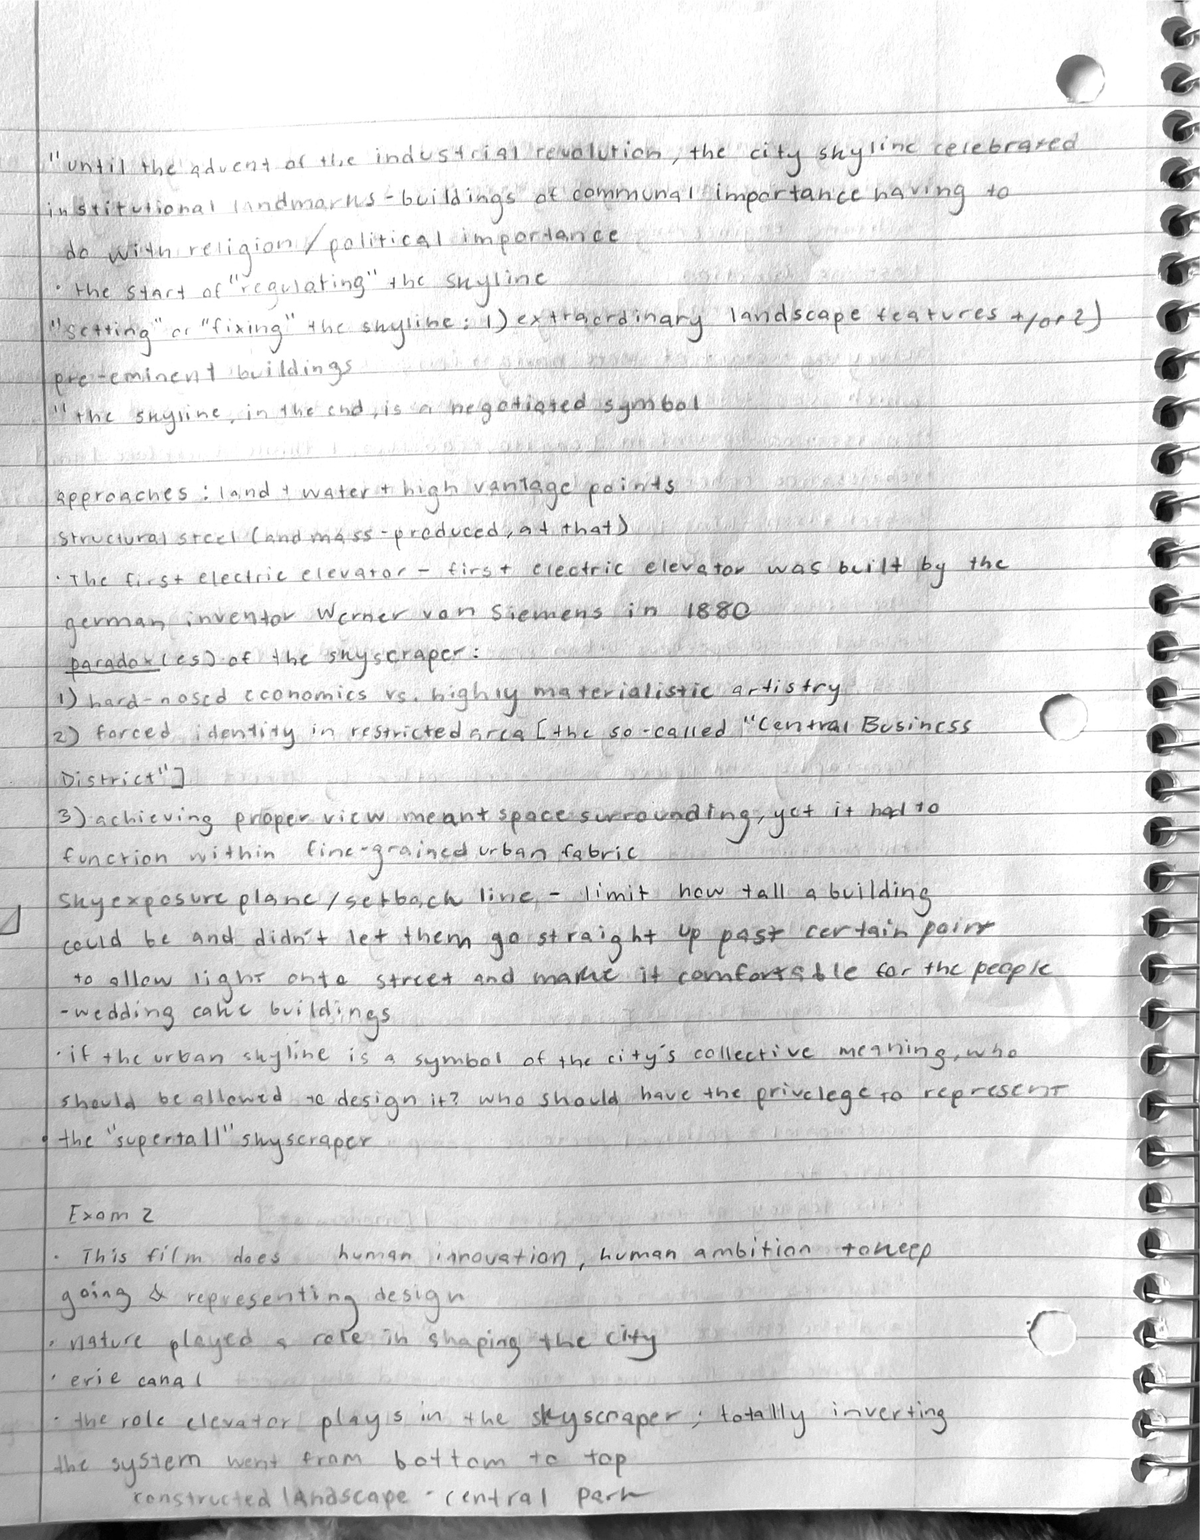 "until the advent of the industrial revolution, the city skyline celebrated
institutional landmarks - buildings of communal importance having to
do with religion/political importance
· the start of "regulating" the skyline
"setting" or "fixing" the skyline: 1) extraordinary landscape features +/or 2)
pre-eminent buildings
"the skyline, in the end, is a negotiated symbol
approaches: land + water + high vantage points
structural steel (and mass-produced, at that)
· The first electric elevator - first electric elevator was built by the
german inventor Werner von Siemens in 1880
paradox(es) of the skyscraper:
1) hard-nosed economics vs. highly materialistic artistry
2) forced identity in restricted area [the so-called "Central Business
District"]
3) achieving proper view meant space surrounding, yet it had to
function within fine-grained urban fabric
sky exposure plane/setback line - limit how tall a building
could be and didn't let them go straight up past certain point
to allow light onto street and make it comfortable for the people
- wedding cake buildings
· if the urban skyline is a symbol of the city's collective meaning, who
should be allowed to design it? who should have the privelege to represent
· the "supertall" skyscraper
Exam 2
· This film does human innovation, human ambition to keep
going & representing design
· nature played a role in shaping the city
· erie canal
· the role elevator plays in the skyscraper; totally inverting
the system went from bottom to top
constructed landscape · central park